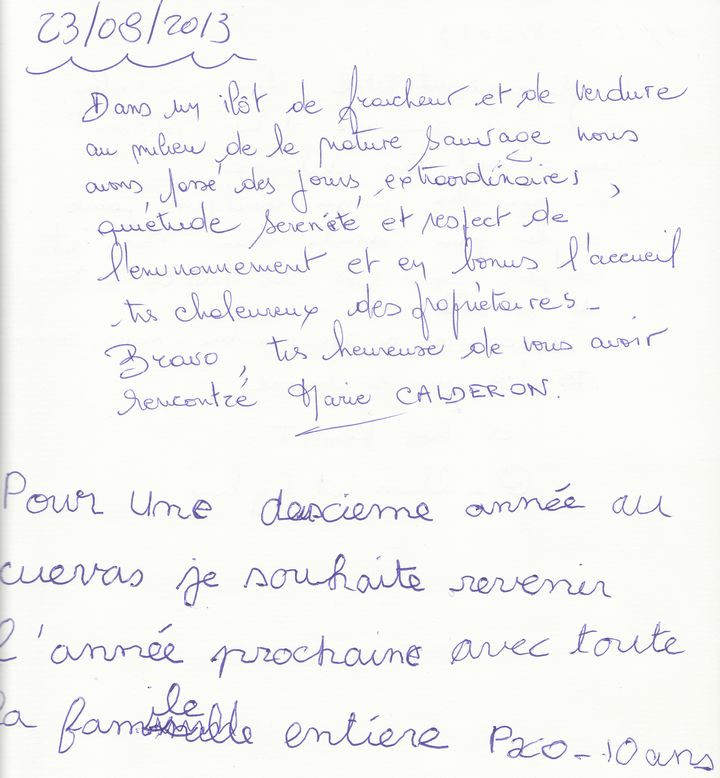 23/08/2013
Dans un ilôt de fraicheur et de verdure
au milieu de la nature sauvage nous
avons passé des jours extraordinaires,
quiétude serenété et respect de
l'environnement et en bonus l'accueil
très chaleureux des propriétaires -
Bravo, très heureuse de vous avoir
rencontré Marie CALDERON.
Pour une deuxcieme année au
cuevas je souhaite revenir
l'année prochaine avec toute
la famile entiere - 10 ans